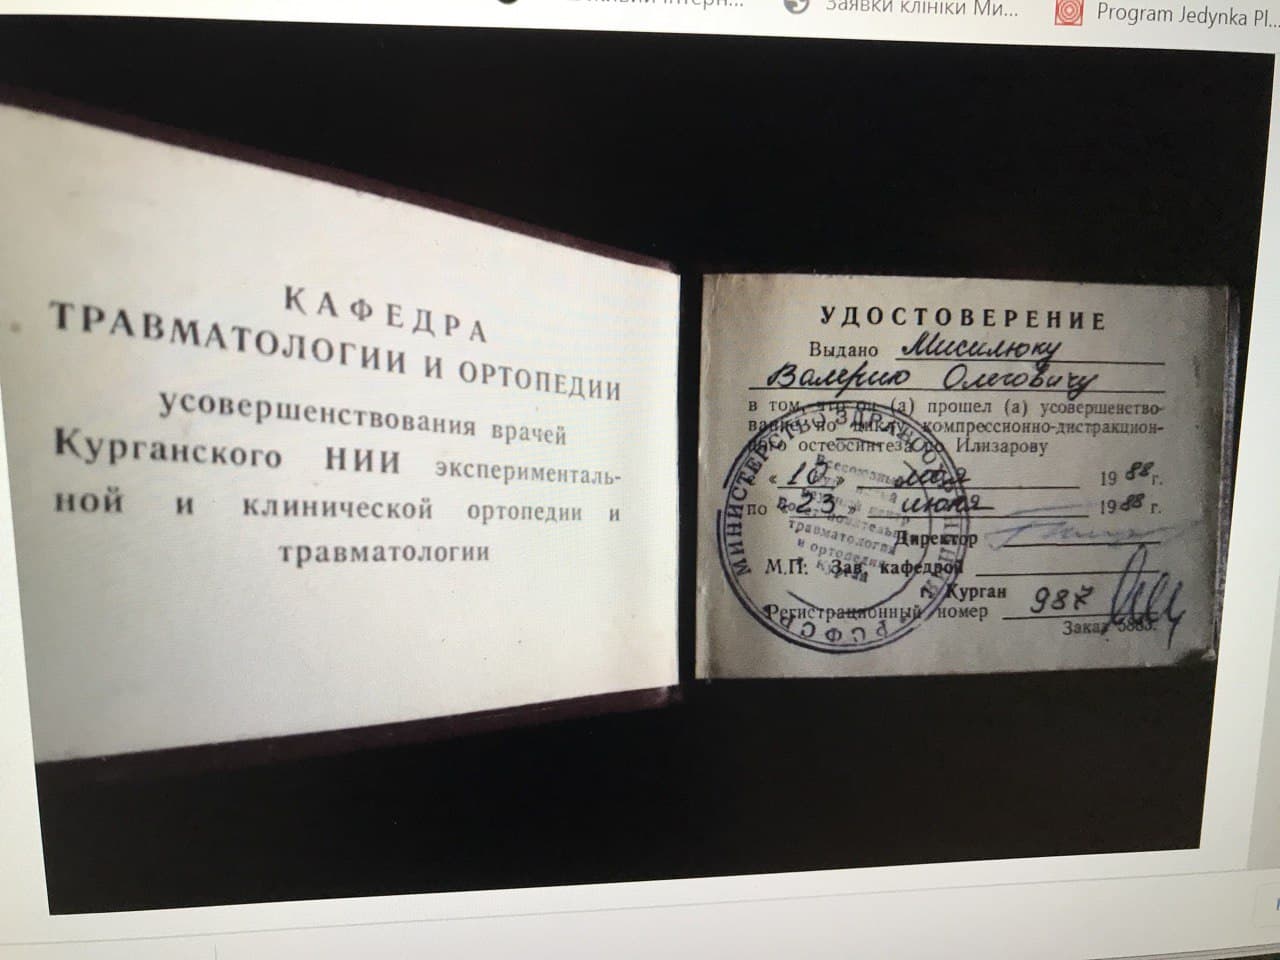 Заявки клініки Ми...
Program Jedynka Pl...
КАФЕДРА
ТРАВМАТОЛОГИИ И ОРТОПЕДИИ
усовершенствования врачей
Курганского НИИ эксперименталь-
ной и клинической ортопедии и
травматологии
УДОСТОВЕРЕНИЕ
Выдано Мисилюку
Валерию Олеговичу
в том, что он (а) прошел (а) усовершенство-
вание по циклу компрессионно-дистракцион-
ного остеосинтеза по Илизарову
с «10» мая 1988 г.
по «23» июня 1988 г.
Директор
М.П. Зав. кафедрой
г. Курган
Регистрационный номер 987
Заказ 5883.
МИНИСТЕРСТВО ЗДРАВООХРАНЕНИЯ РСФСР
Всесоюзный
научный центр
травматология
и ортопедия
г. Курган